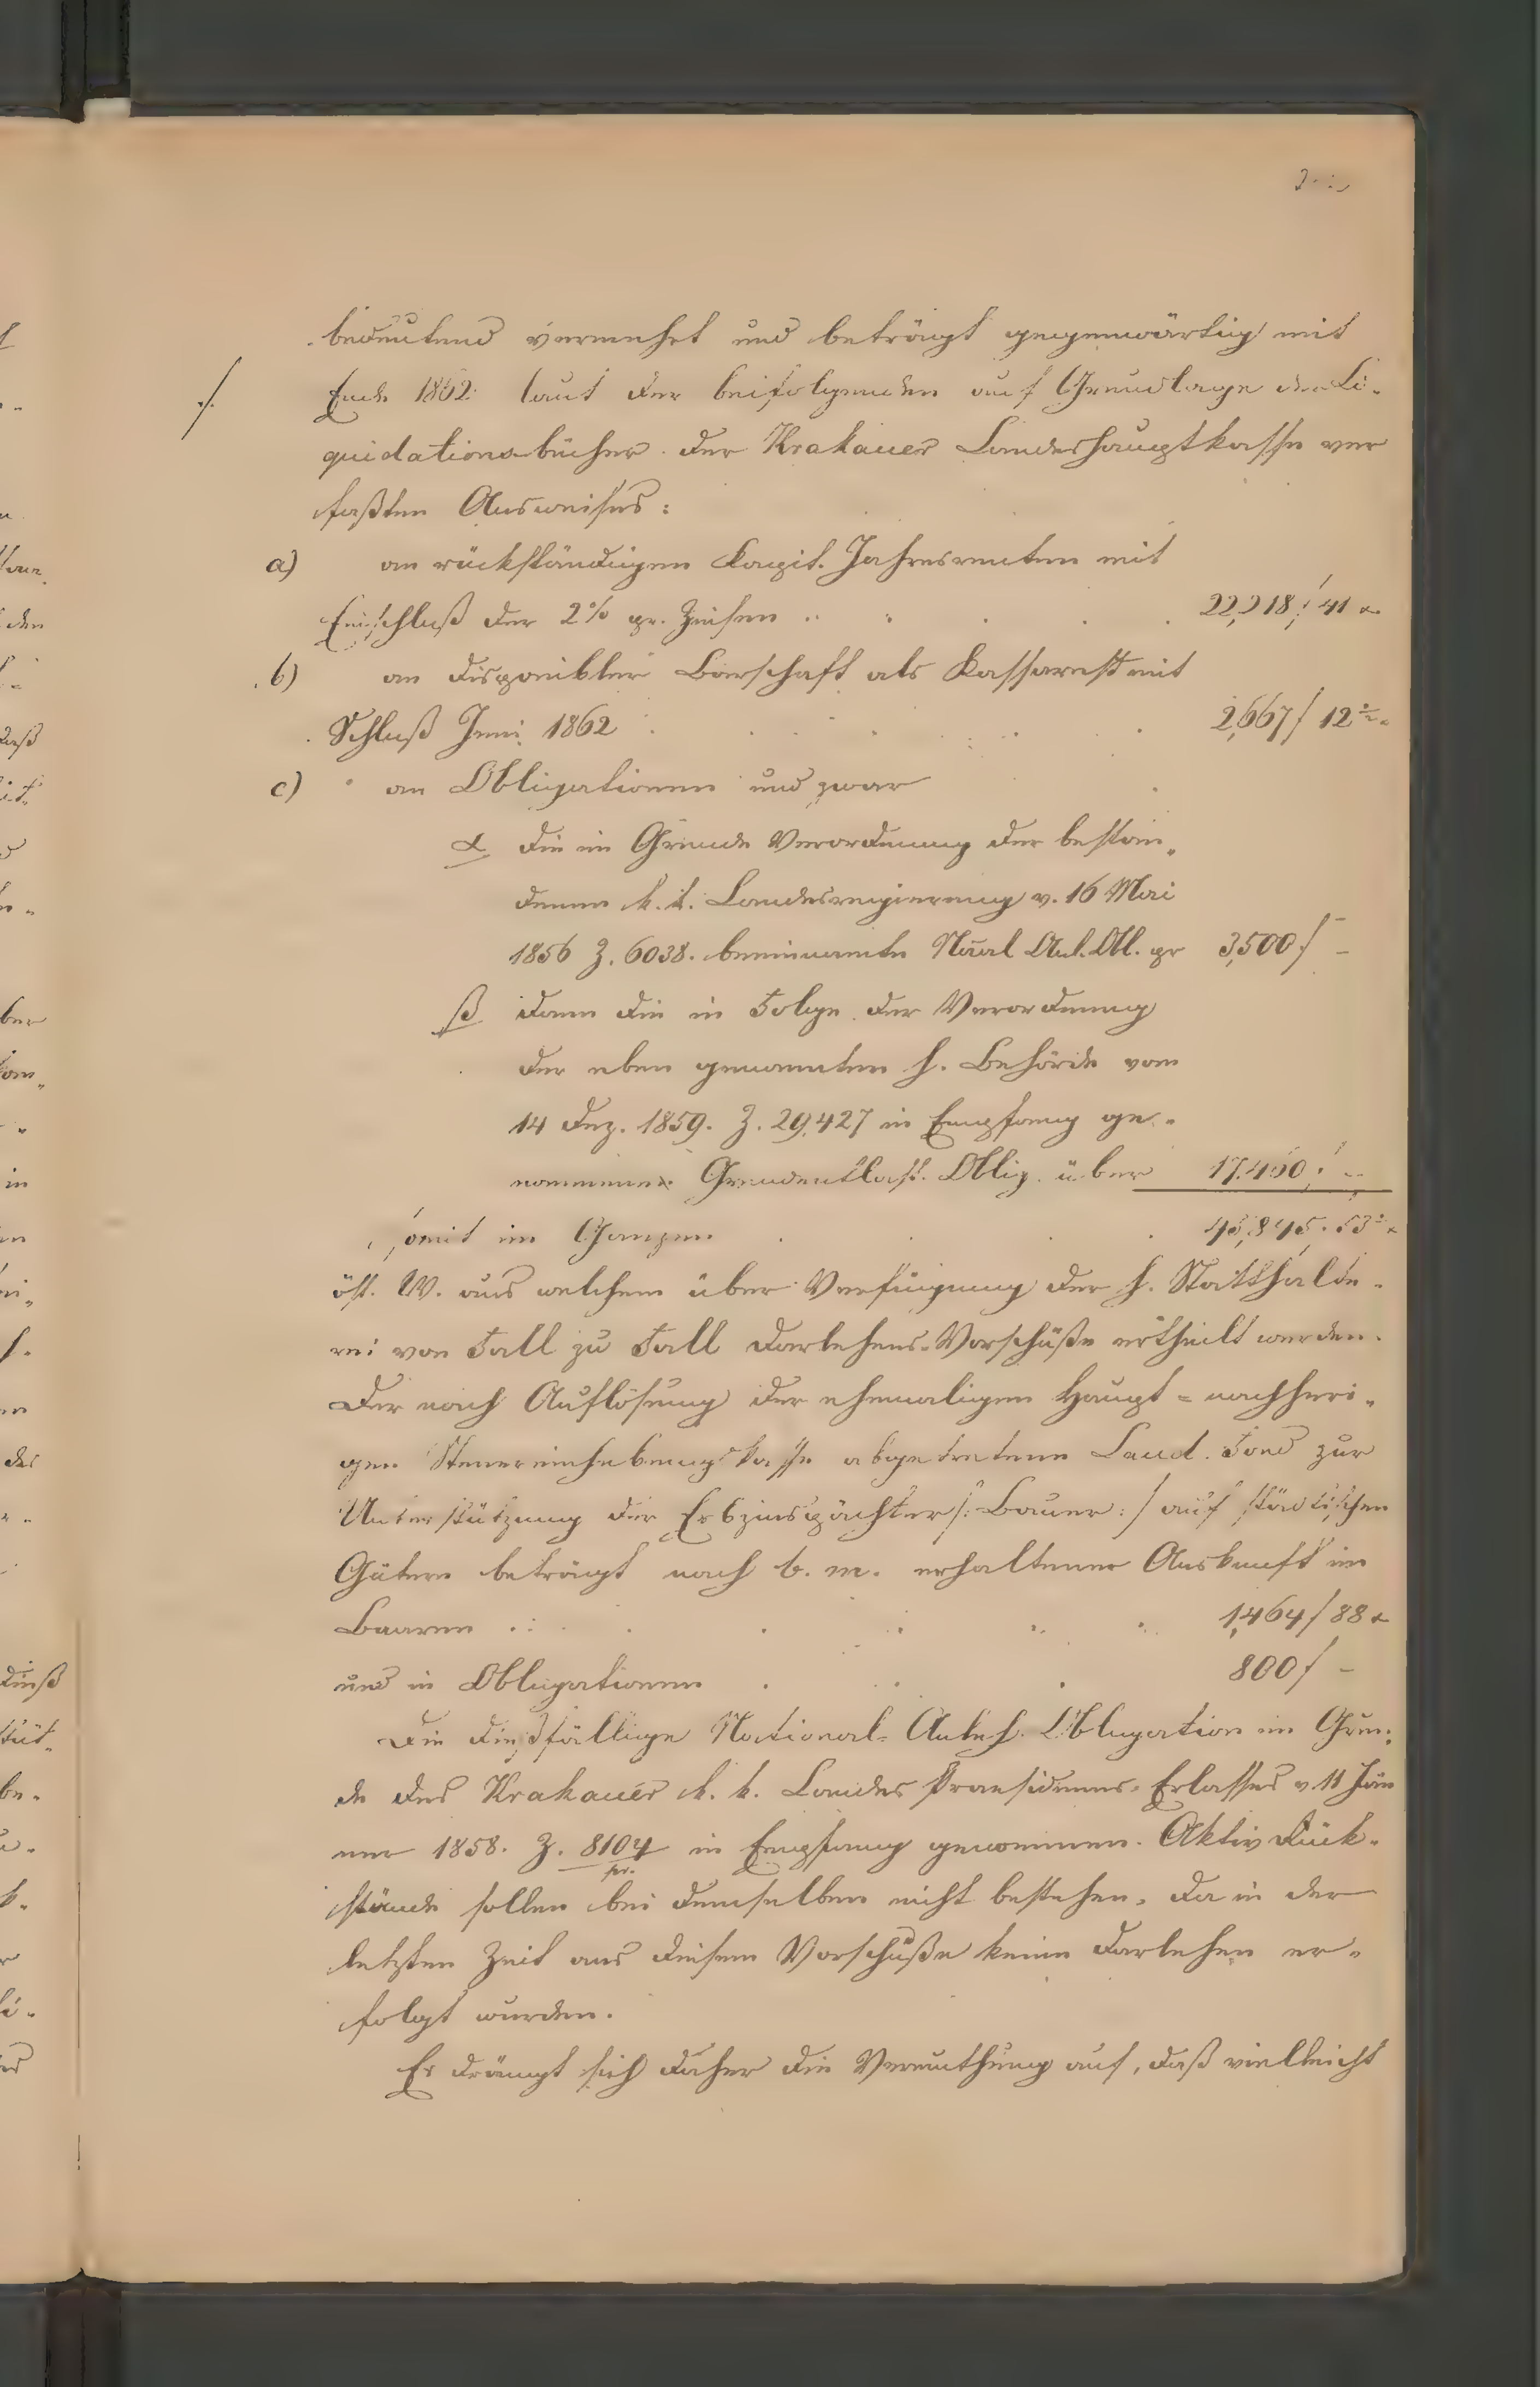 bedeutend vermehrt und beträgt gegenwärtig mit
./.
Ende 1862 laut der beifolgenden auf Grundlage der Li-
quidationsbücher der Krakauer Landeshauptkasse ver
faßten Ausweises:
a) an rückständigen Kapit. Jahresrenten mit
Einschluß der 2% gr. Zinsen . . . . 22,218 f 41 x
b) an disponibler Barschaft als Kassarest mit
Schluß Juni 1862 . . . . 2,667 f 12
c) an Obligationen und zwar
α die im Grunde Verordnung der bestan„
denen k. k. Landesregierung v. 16 Mai
1856 Z. 6038. Naal Anl. Obl. pr 3,500 f –
ß dann die in Folge der Verordnung
der eben genannten h. Behörde vom
14 Dez. 1859. Z. 29,427 in Empfang ge-
nommenen Grundentlast. Oblig. über 17.460 f –
somit im Ganzen . . . 45,845 . 53 x
öst. W. aus welchem über Verfügung der h. Statthalte-
rei von Fall zu Fall Darlehens-Vorschüße ertheilt werden.
Der nach Auflösung der ehemaligen Haupt = nachheri-
gen Steuereinhebungskasse abgetretene Laud. Fond zur
Unterstützung der Erbzinspächter /: Bauer :/ auf städtischen
Gütern beträgt nach b. m. erhaltener Auskunft im
Baaren . . . . . 1,464 f 88 x
und in Obligationen . . . 800 f –
Die dießfällige National-Anleh. Obligation im Grun-
de des Krakauer k. k. Landes Praesidiums-Erlasses v. 11 Jän
ner 1858. Z. 8104/pr. in Empfang genommen. Aktiv Rück-
stände sollen bei demselben nicht bestehen, da in der
letzten Zeit aus diesem Vorschuße keine Darlehen er-
folgt wurden.
Es drängt sich daher die Vermuthung auf, daß vielleicht